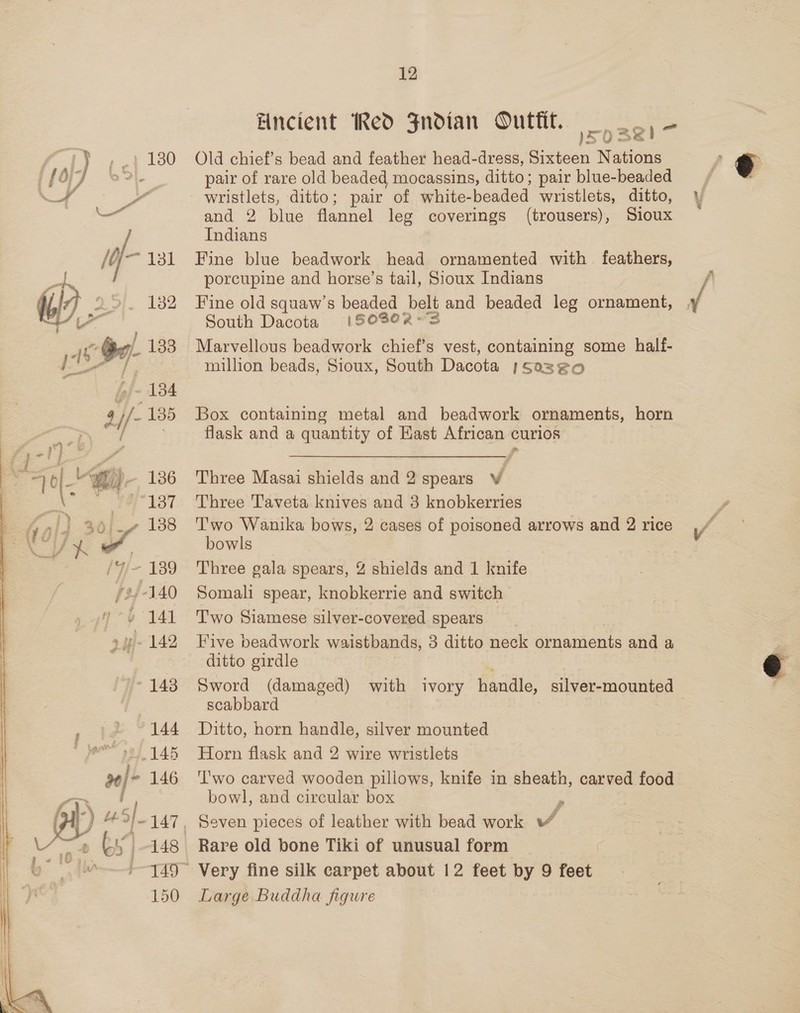 12
Ancient Red Indian Outfit.
130 Old chief's bead and feather head-dress, Sixteen Nations
pair of rare old beaded mocassins, ditto; pair blue-beaded
wristlets, ditto; pair of white-beaded wristlets, ditto,
and 2 blue flannel leg coverings (trousers), Sioux
Indians
131 Fine blue beadwork head ornamented with feathers,
porcupine and horse's tail, Sioux Indians
132 Fine old squaw's beaded belt and beaded leg ornament,
South Dacota
133 Marvellous beadwork chief's vest, containing some half-
million beads, Sioux, South Dacota
134
135 Box containing metal and beadwork ornaments, horn
flask and a quantity of East African curios
136 Three Masai shields and 2 spears
137 Three Taveta knives and 3 knobkerries
138 Two Wanika bows, 2 cases of poisoned arrows and 2 rice
bowls
139 Three gala spears, 2 shields and 1 knife
140 Somali spear, knobkerrie and switch
141 Two Siamese silver-covered spears
142 Five beadwork waistbands, 3 ditto neck ornaments and a
ditto girdle
143 Sword (damaged) with ivory handle, silver-mounted
scabbard
144 Ditto, horn handle, silver mounted
145 Horn flask and 2 wire wristlets
146 Two carved wooden pillows, knife in sheath, carved food
bowl, and circular box
147 Seven pieces of leather with bead work
148 Rare old bone Tiki of unusual form
149 Very fine silk carpet about 12 feet by 9 feet
150 Large Buddha figure